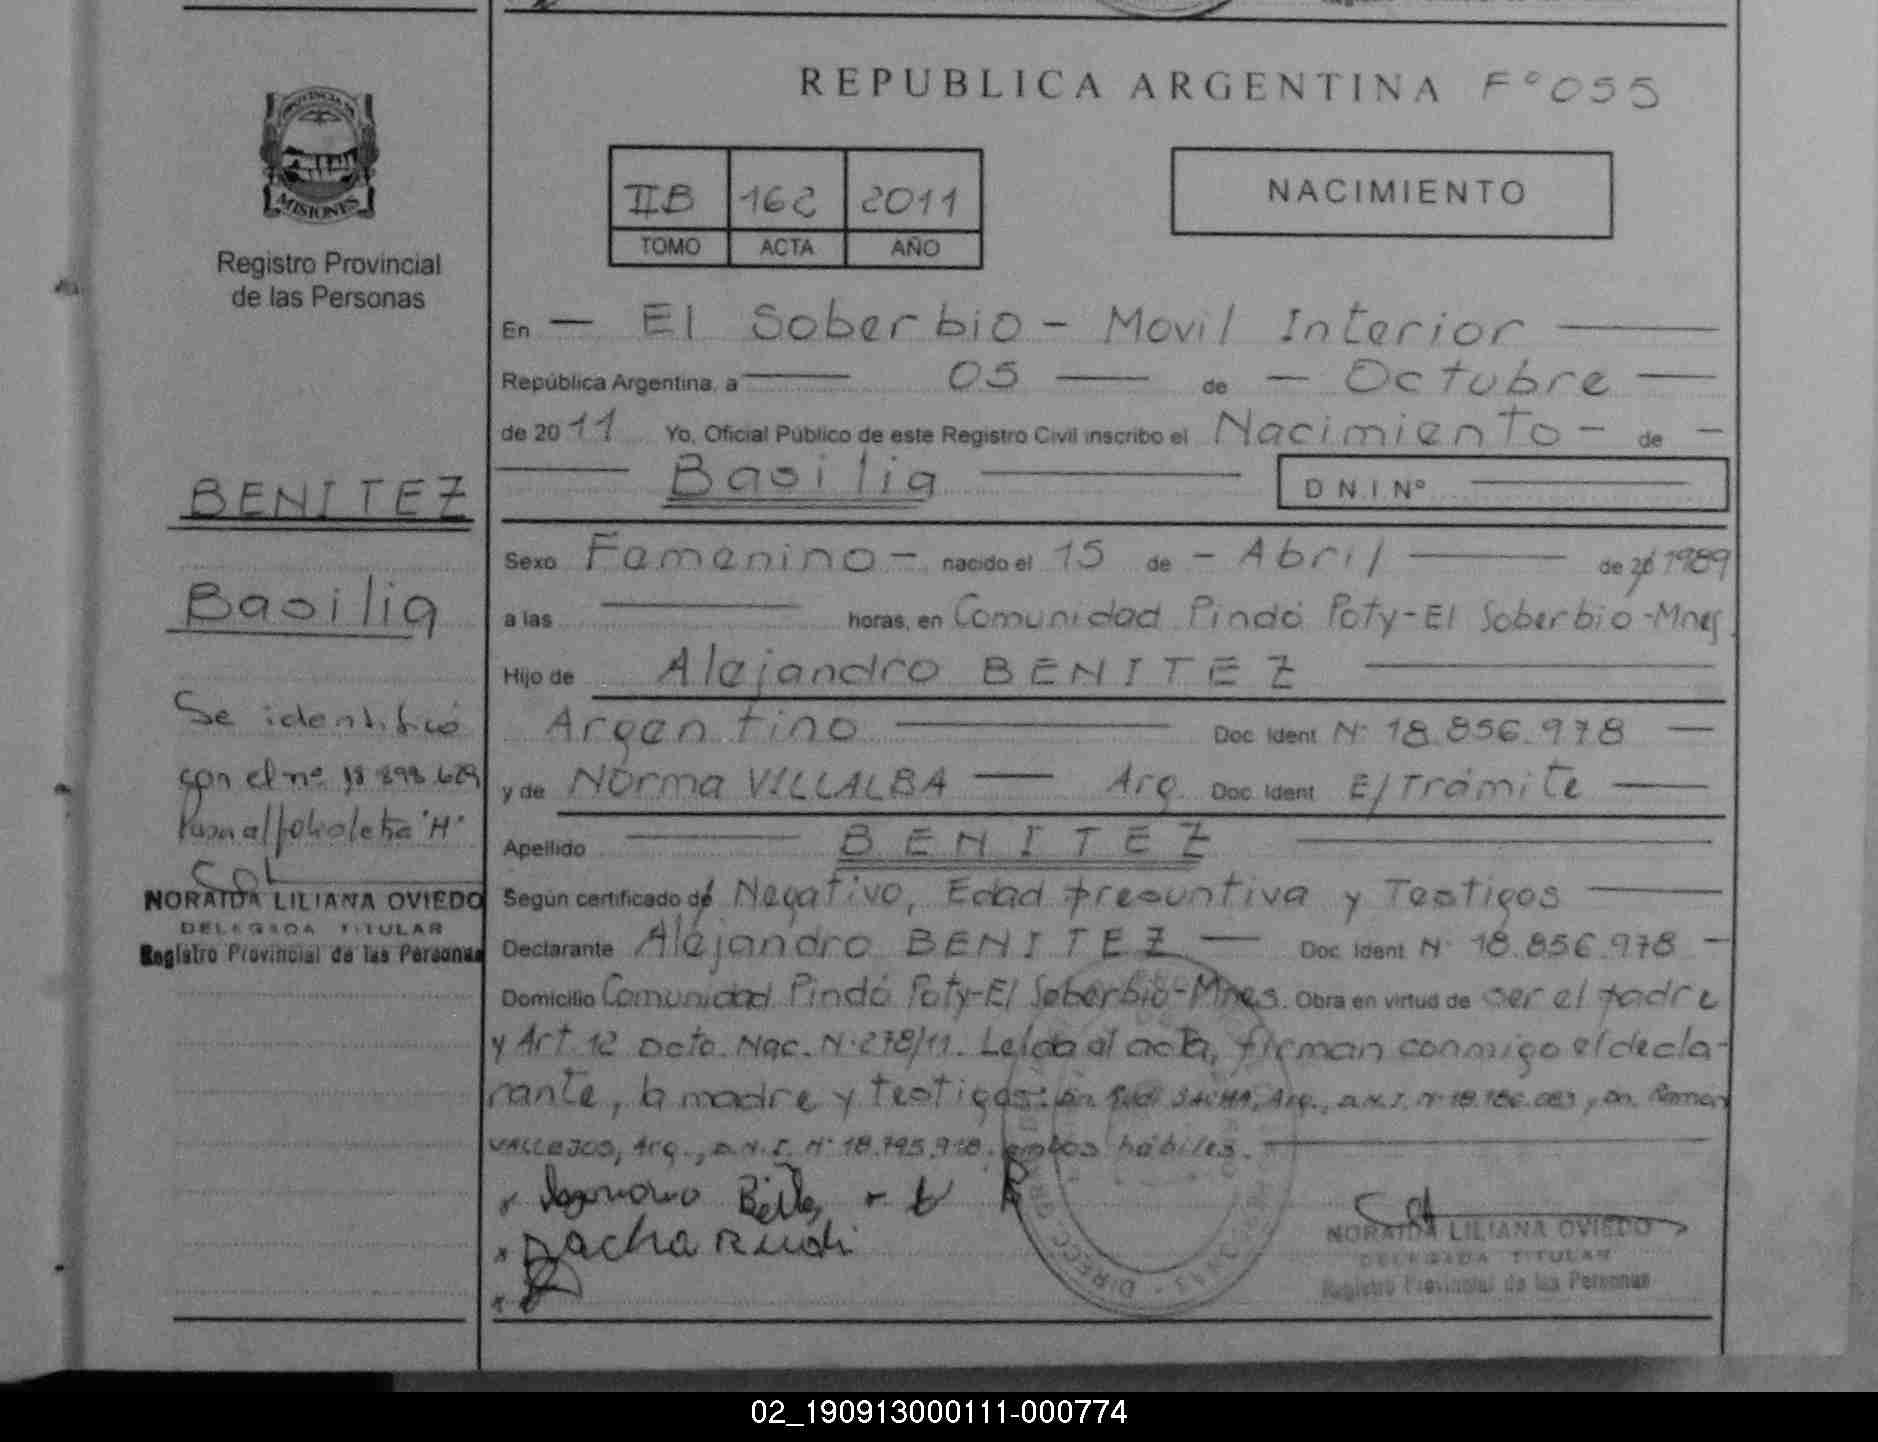 REPUBLICA ARGENTINA F° 055
PROVINCIA DE
MISIONES
Registro Provincial
de las Personas
IIB 162 2011
TOMO ACTA AÑO
NACIMIENTO
En — El Soberbio - Movil Interior —
República Argentina, a — 05 — de — Octubre —
de 2011 Yo, Oficial Público de este Registro Civil inscribo el Nacimiento - de -
— Basilia — D N I Nº —
BENITEZ
Basilia
Sexo Femenino - nacido el 15 de - Abril — de 20 1989
a las — horas, en Comunidad Pindó Poty-El Soberbio-Mnes.
Hijo de Alejandro BENITEZ —
Argentino — Doc Ident Nº 18.856.978 —
y de Norma VILLALBA — Arg. Doc Ident E/Trámite —
Apellido — BENITEZ —
Según certificado de Negativo, Edad presuntiva y Testigos —
Declarante Alejandro BENITEZ — Doc Ident Nº 18.856.978 —
Domicilio Comunidad Pindó Poty-El Soberbio-Mnes. Obra en virtud de ser el padre
y Art. 12 Dcto. Nac. Nº 278/11. Leída el acta, firman conmigo el decla-
rante, la madre y testigos: Dn. SACHA, Arg., D.N.I. Nº , Dn. Ramon
VALLEJOS, Arg., D.N.I. Nº ambos hábiles. —
Se identificó
con el nº
NORAIDA LILIANA OVIEDO
DELEGADA TITULAR
Registro Provincial de las Personas
x x
x Sacha Rudi
x
NORAIDA LILIANA OVIEDO
DELEGADA TITULAR
Registro Provincial de las Personas
02_190913000111-000774